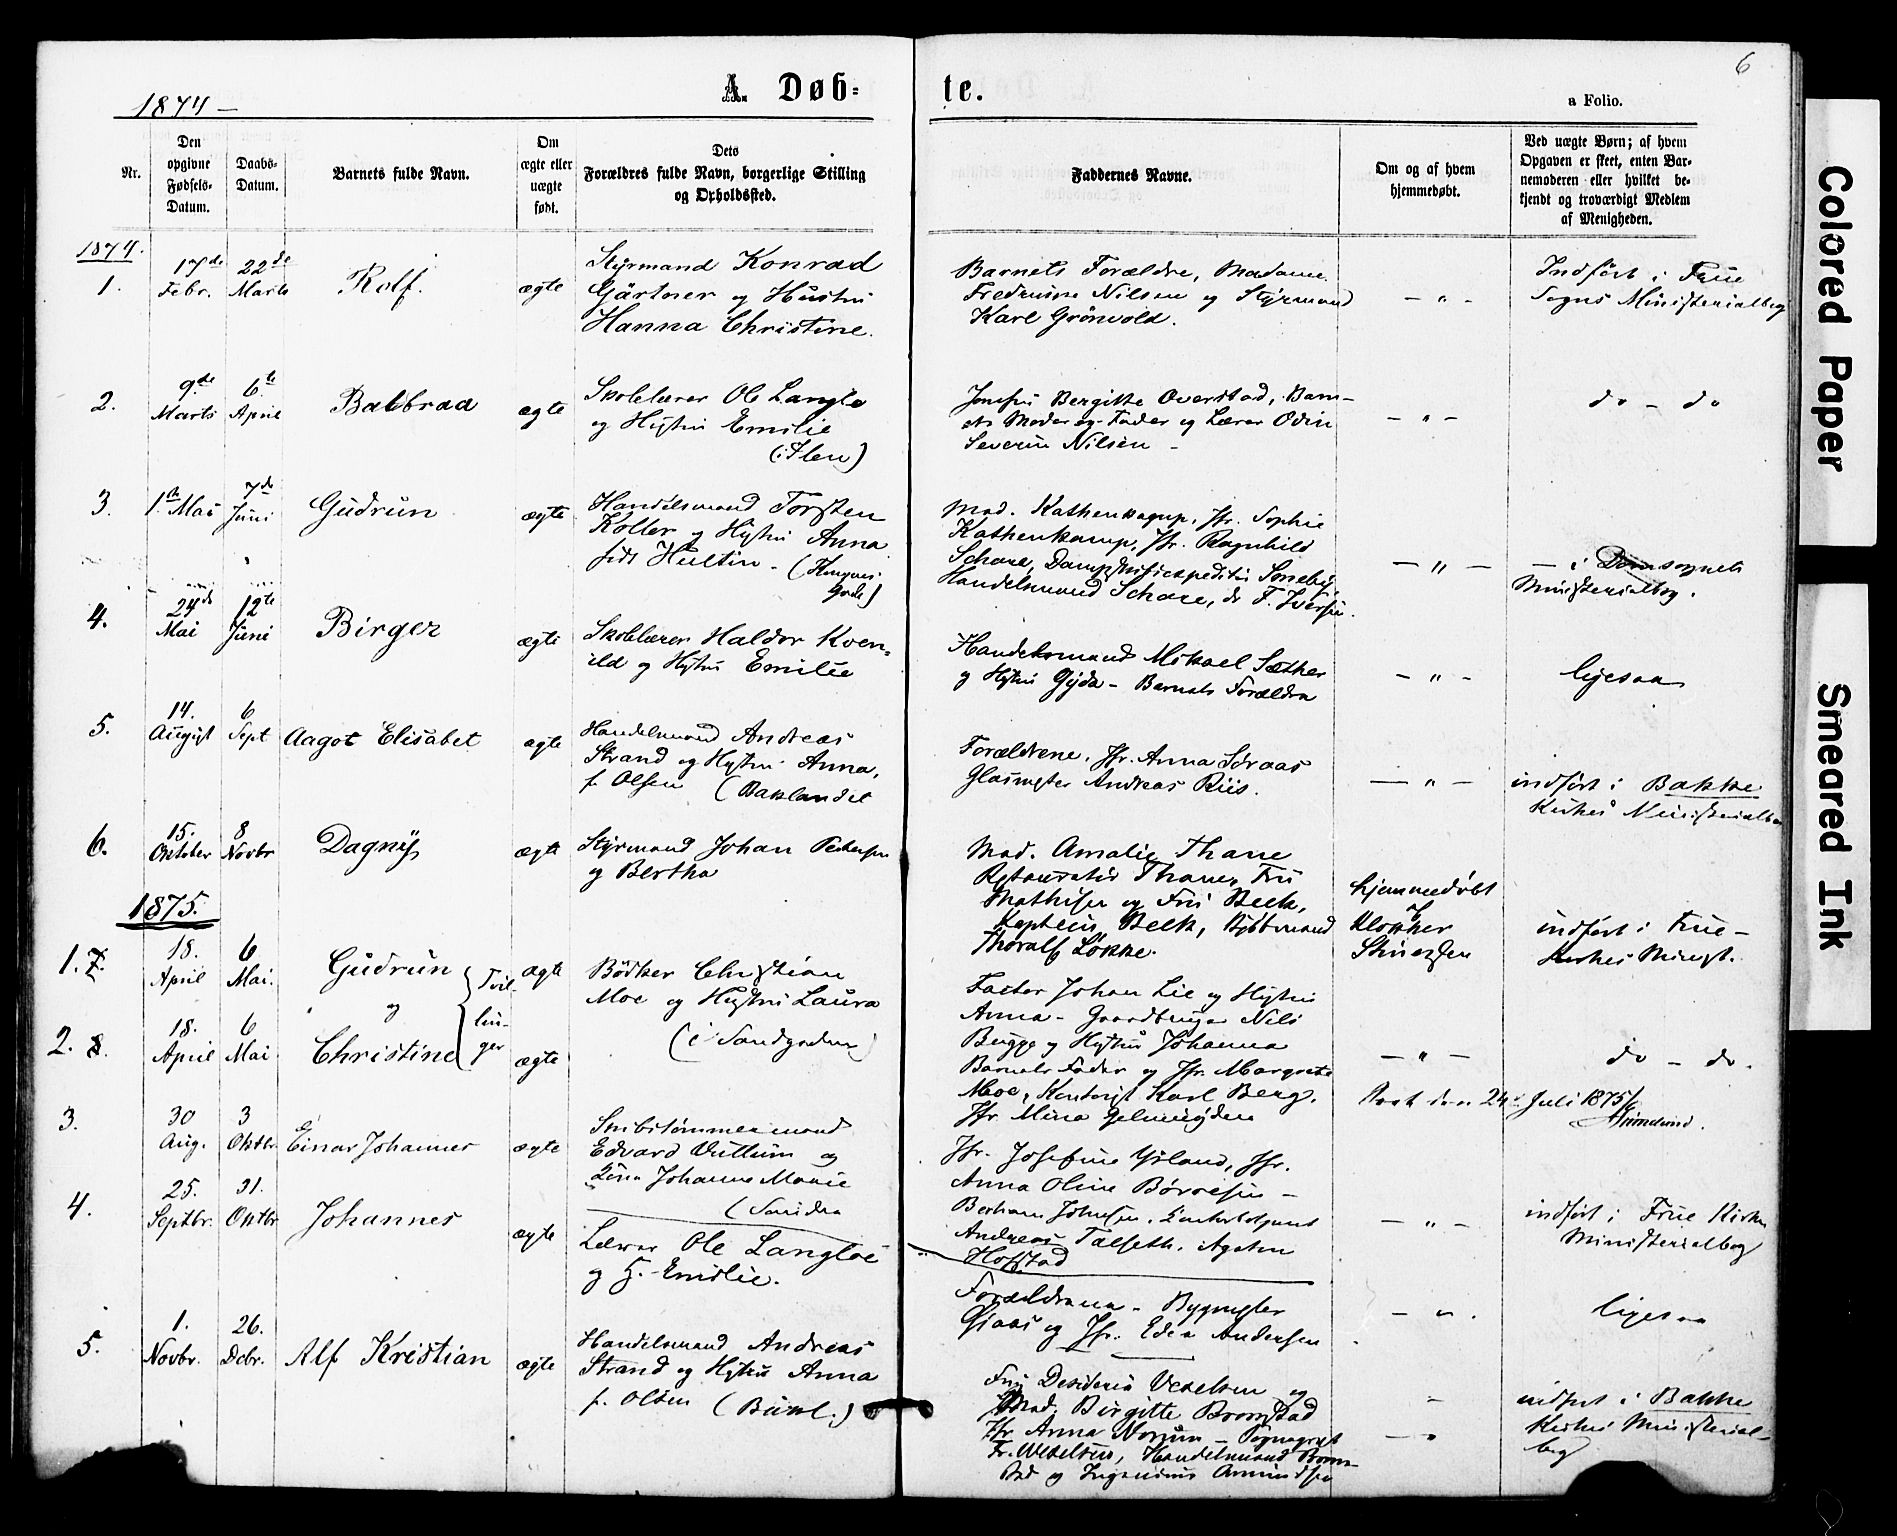 6
1874 —
A. Døb= te.
a Folio.
Nr.
Den opgivne Fødsels-Datum.
Daabs-Datum.
Barnets fulde Navn.
Om ægte eller uægte født.
Dets Forældres fulde Navn, borgerlige Stilling og Opholdssted.
Faddernes Navne.
Om og af hvem hjemmedøbt.
Ved uægte Børn; af hvem Opgaven er skeet, enten Barnemoderen eller hvilket bekjendt og troværdigt Medlem af Menigheden.
1874.
1.
17de Febr.
22de Marts
Rolf.
ægte
Styrmand Konrad
Gärtner og Hustru
Hanna Christine.
Barnets Forældre, Madame
Fredrikke Nilsen og Styrmand
Karl Grönvold.
— " —
Indført i Frue
Sogns Ministerialbog
2.
9de Marts
6te April
ægte
Skolelærer Ole Langlo
og Hustru Emilie
(Ilen)
Jomfru Bergitte Overstad, Barn-
ets Moder og Fader og Lærer Odin
Severin Nilsen —
— " —
do — do
3.
1ste Mai
7de Juni
Gudrun
ægte
Handelsmand Torsten
Koller og Hustru Anna
født Hultin — (
Mad. Kathenkamp, Jfr. Sophie
Kathenkamp, Jfr. Ragnhild
Handelsmand Schare, do F. Iversen.
— " —
— i Domsognets
Ministerialbog.
4.
24de Mai
12te Juni
Birger
ægte
Skolelærer Haldor Kven-
ild og Hustru Emilie
Handelsmand Mikael Sæther
og Hustru Gyda — Barnets Forældre
— " —
ligesaa
5.
14. August
6 Sept
Aagot Elisabet
ægte
Handelsmand Andreas
Strand og Hustru Anna,
f. Olsen (Baklandet
Forældrene, Jfr. Anna Sdraas
Glasmester Andreas Riis.
— " —
indført i Bakke
Kirkes Ministerialbog
6.
15. Oktober
8 Novbr
Dagny
ægte
Styrmand Johan Pedersen
og Bertha
Mad. Amalie Thane
Restauratør Thane, Fru
Mathisen og Fru Beck,
Kaptein Beck,
Thoralf Løkke.
hjemmedøbt
af
Klokker
indført i Frue —
1875.
1. 7.
18. April
6 Mai.
Gudrun
og
Tvil-
lin-
ger
ægte
Bödker Christian
Moe og Hustru Laura
(i Sandgaden)
Factor Johan Lie og Hustru
Anna — Gaardbruger Nils
Bugge og Hustru Johanna
Barnets Fader og Jfr. Margrete
Moe, Kontorist Karl Berg,
2. 8.
18. April
6 Mai
Christine
ægte
— " —
do — do.
den 24de Juli 1875
3.
30 Aug.
3 Oktbr
Einar Johannes
ægte
Skibstømmermand
Edvard Vullum og
Johanne Marie
Jfr. Mina
Jfr. Josefine Ysland, Jfr.
Anna Oline Börresen —
Andreas Talseth, Agaten
Hofstad
— " —
indført i Frue Kirkes
Ministerialbog
4.
25. Septbr.
31. Oktbr
Johannes
ægte
Lærer Ole Langloe
og H. Emilie.
Forældrene — Bygmester
Gjaas og Jfr. Edea Andersen
— " —
ligesaa
5.
1. Novbr.
26. Debr.
Alf Kristian
ægte
Handelsmand Andreas
Strand og Hustru Anna
f. Olsen (Bakl.)
Fru Desideria Vedelsen og
Mad. Birgitte Bromstad
Jfr Anna Norum —
Handelsmand Brom-
stad og
— " —
indført i Bakke
Kirkes Ministerial-
bog
Colored Paper
Smeared Ink